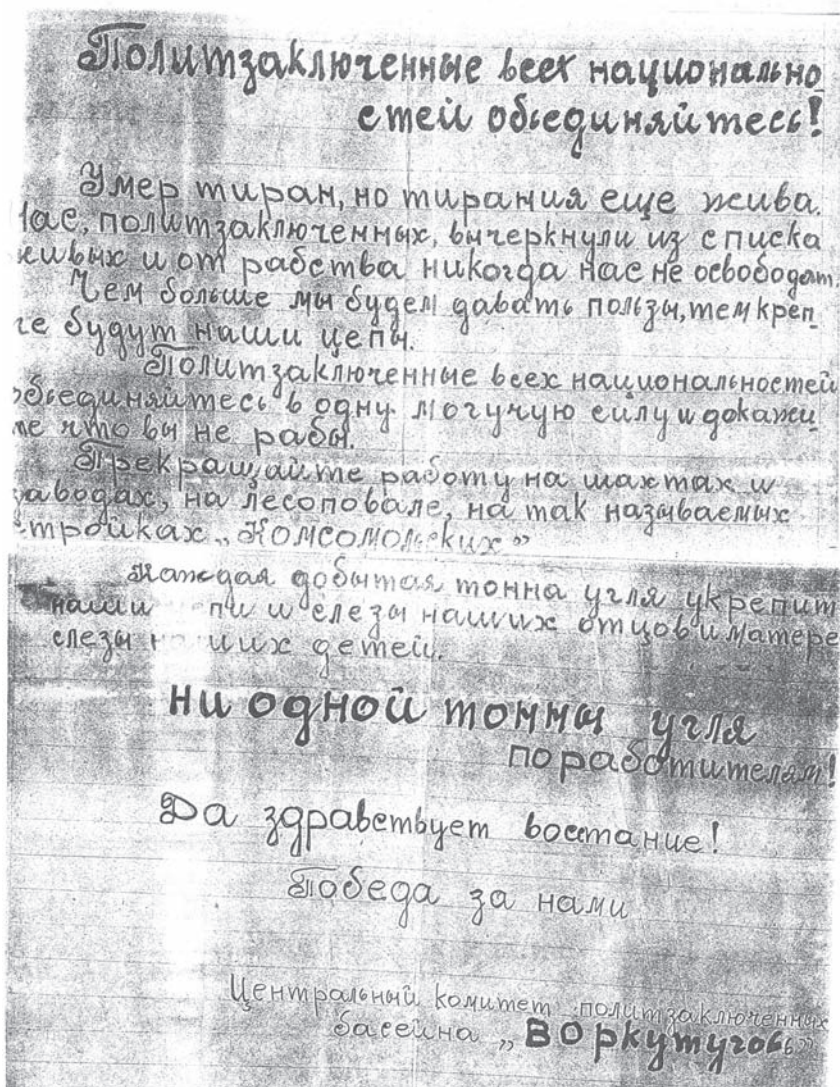 Политзаключенные всех национально
стей обьединяйтесь!
Умер тиран, но тирания еще жива.
Нас, политзаключенных, вычеркнули из списка
живых и от рабства никогда нас не освободят.
Чем больше мы будем давать пользы, тем креп
че будут наши цепи.
Политзаключенные всех национальностей
обьединяйтесь в одну могучую силу и докажи
те что вы не рабы.
Прекращайте работу на шахтах и
заводах, на лесоповале, на так называемых
стройках „Комсомольских”
Каждая добытая тонна угля укрепит
наши пи и слезы наших отцов и матере
слезы наших детей.
ни одной тонны угля
поработителям!
Да здравствует востание!
Победа за нами
Центральный комитет политзаключенных
басейна „Воркутуголь”